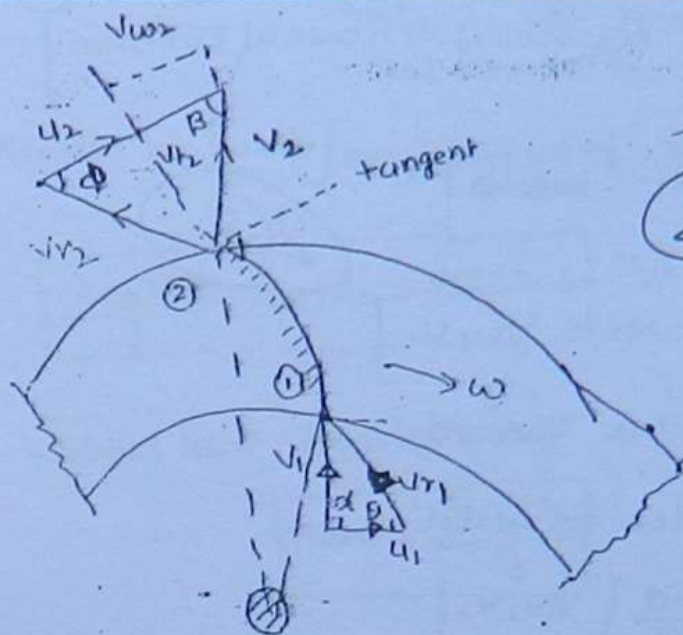 Vw2
u2
β
V2
Vf2
tangent
ϕ
Vr2
②
①
ω
V1
Vr1
α
θ
u1
2